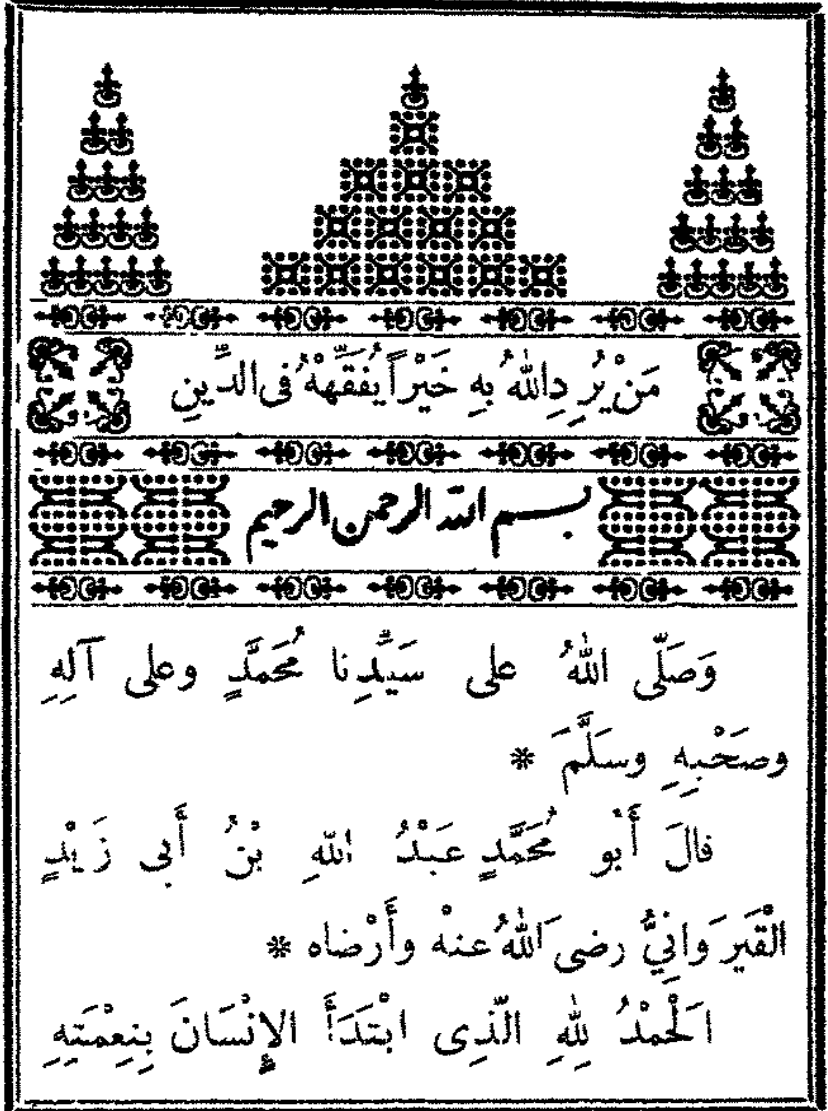 مَنْ يُرِدِ اللهُ بِهِ خَيْراً يُفَقِّهْهُ فى الدِّينِ
بسم الله الرحمن الرحيم
وَصَلَّى اللهُ على سَيِّدِنا مُحَمَّدٍ وعلى آلِهِ
وصَحْبِهِ وسَلَّمَ *
قالَ أَبُو مُحَمَّدٍ عَبْدُ اللهِ بْنُ أَبى زَيْدٍ
الْقَيْرَوانِيُّ رضى اللهُ عنهْ وأَرْضاه *
اَلْحَمْدُ لِلهِ الَّذِى ابْتَدَأَ الإِنْسَانَ بِنِعْمَتِهِ